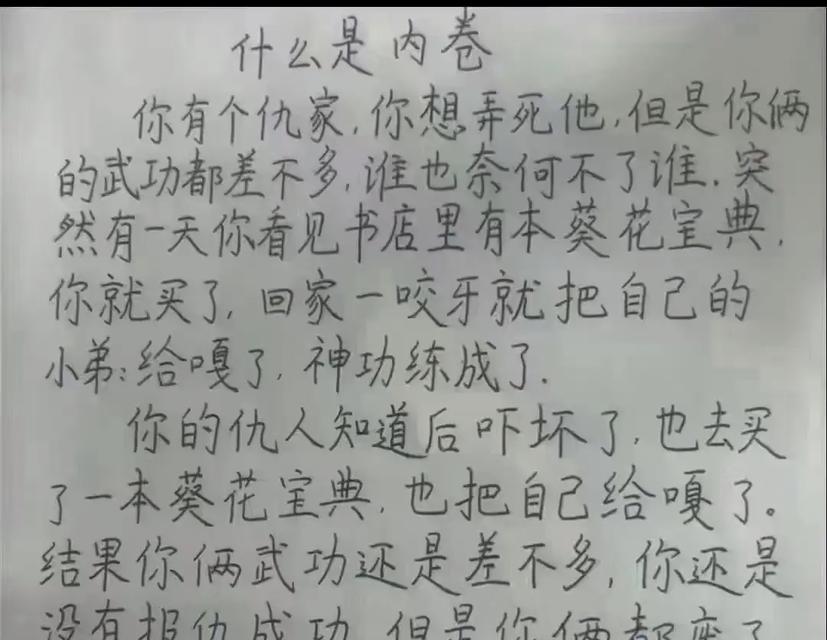 什么是内卷
你有个仇家,你想弄死他,但是你俩
的武功都差不多,谁也奈何不了谁.突
然有一天你看见书店里有本葵花宝典,
你就买了,回家一咬牙就把自己的
小弟:给嘎了,神功练成了.
你的仇人知道后吓坏了,也去买
了一本葵花宝典,也把自己给嘎了。
结果你俩武功还是差不多,你还是
没有报仇成功,但是你俩都变了